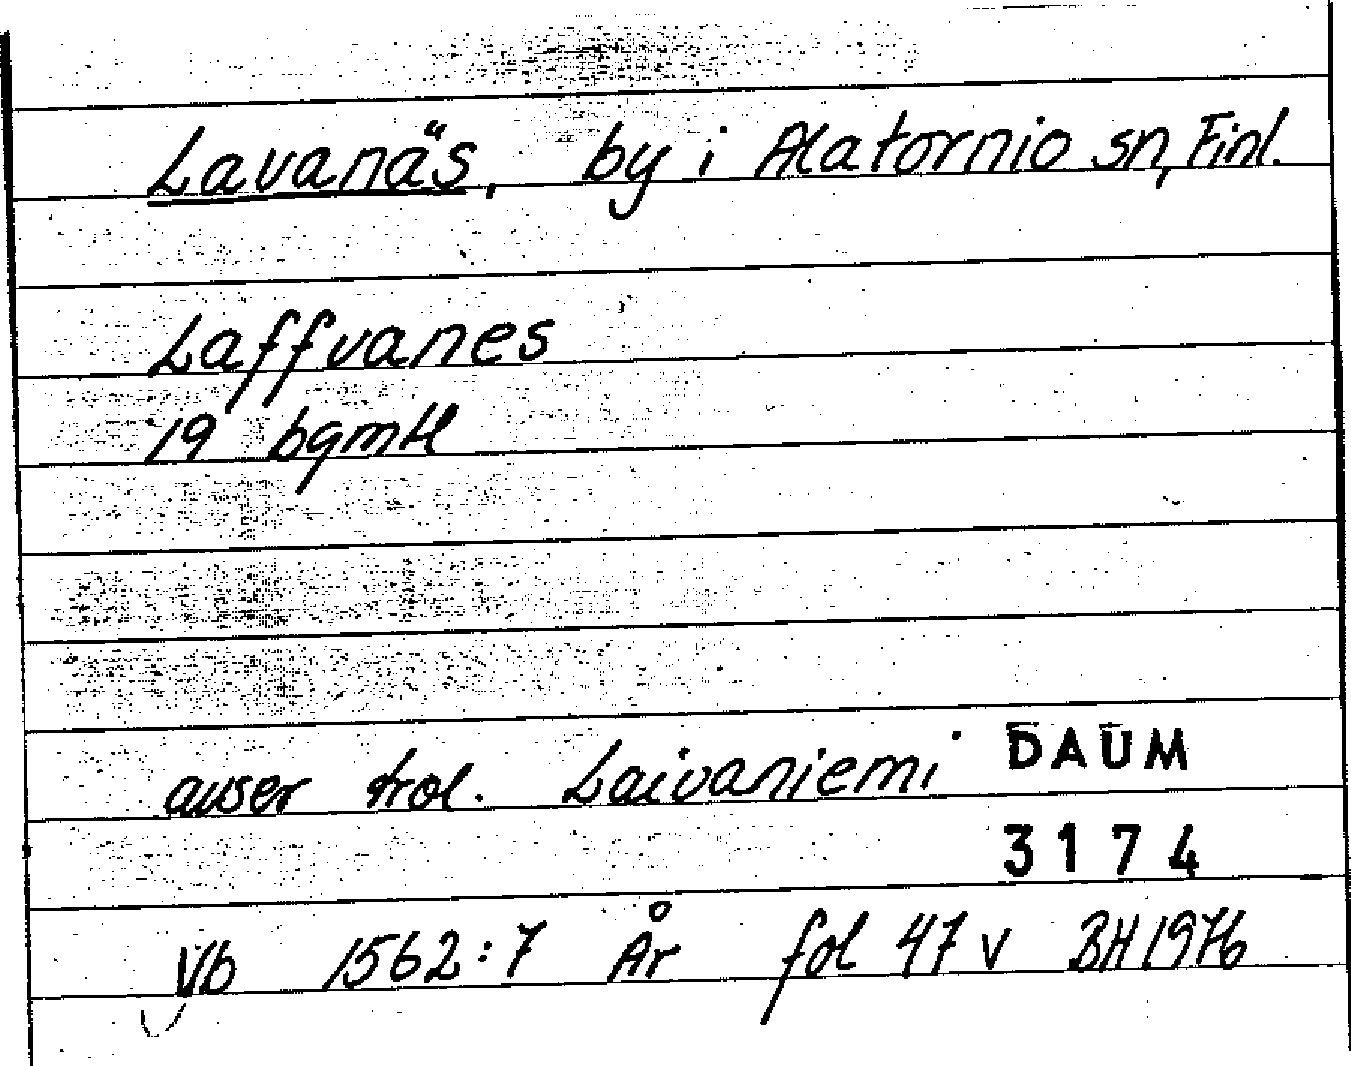 Lavanäs, by i Alatornio sn, Finl.
Laffvanes
19 bgmtl
avser trol. Laivaniemi DAUM
3174
Vb 1562:7 År fol 47 v BH 1976